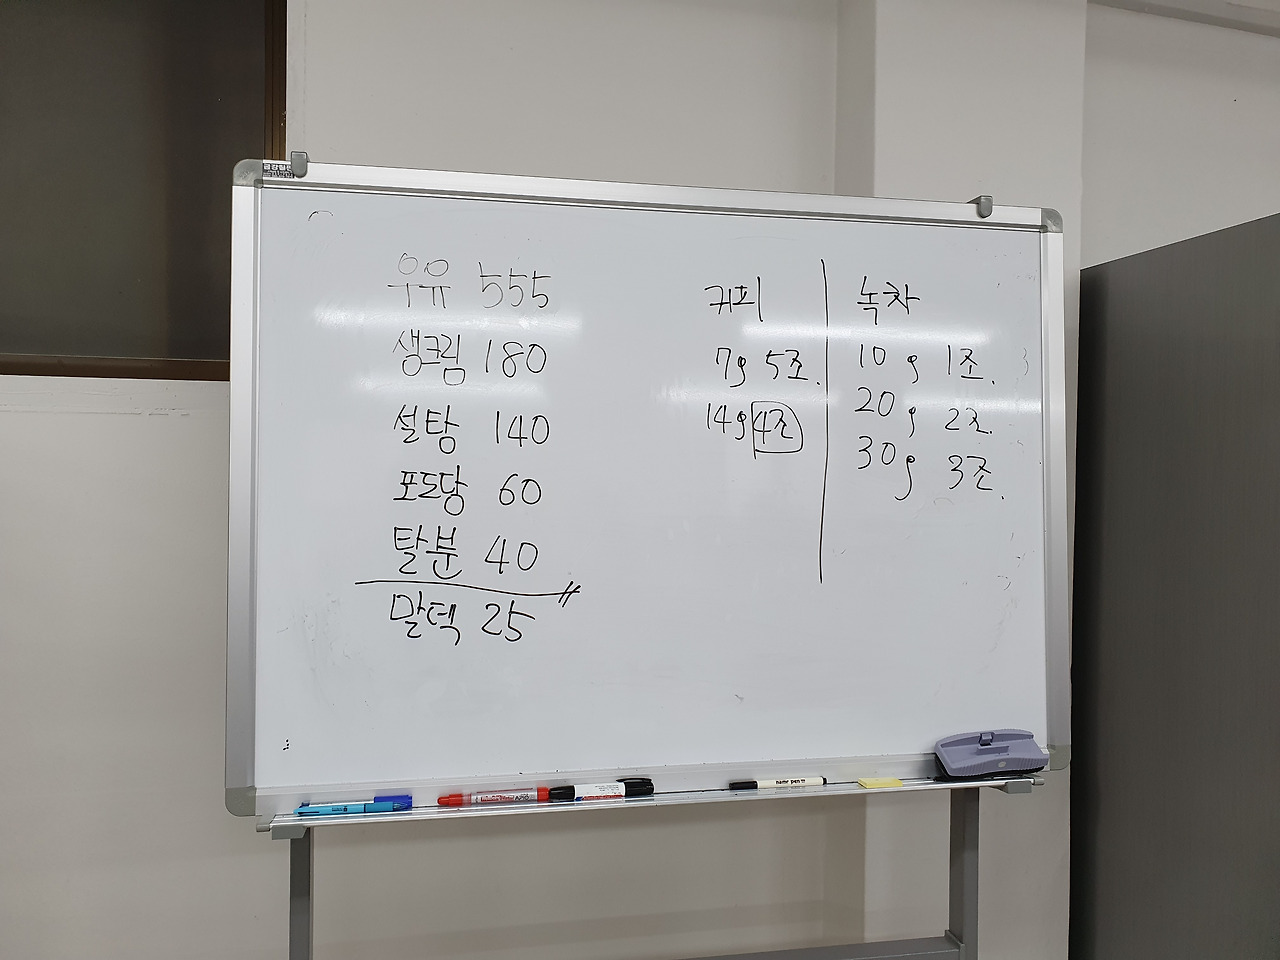 우유 555
생크림 180
설탕 140
포도당 60
탈분 40
말덱 25
커피
7g 5조.
14g 4조
녹차
10g 1조.
20g 2조.
30g 3조.
name pen